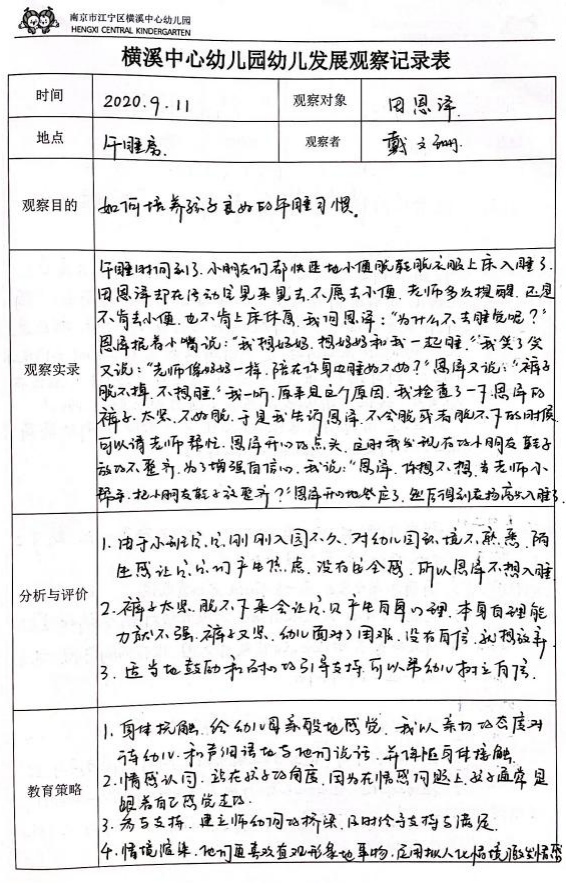 南京市江宁区横溪中心幼儿园
HENGXI CENTRAL KINDERGARTEN
横溪中心幼儿园幼儿发展观察记录表
时间 2020.9.11 观察对象 田恩泽
地点 午睡房. 观察者 戴文珊.
观察目的 如何培养孩子良好的午睡习惯。
观察实录
午睡时间到了.小朋友们都快速地小便脱鞋脱衣服上床入睡了.
田恩泽却在活动室晃来晃去.不愿去小便.老师多次提醒.还是
不肯去小便.也不肯上床休息.我问恩泽:“为什么不去睡觉呢?”
恩泽抿着小嘴说:“我想好好.想好好和我一起睡.”我笑了笑
又说:“老师像好好一样.陪在你身边睡如不如?”恩泽又说:“裤子
脱不掉.不想睡.”我一听.原来是这个原因.我检查了一下恩泽的
裤子.太紧.不好脱.于是我告诉恩泽.不会脱或者脱不下的时候
可以请老师帮忙.恩泽开心的点头.这时我发现有的小朋友鞋子
放的不整齐.为了增强自信心.我说:“恩泽.你想不想当老师小
帮手.把小朋友鞋子放整齐?”恩泽开心地答应了.然后得到表扬高兴入睡了.
分析与评价
1.由于小班幼儿刚刚入园不久.对幼儿园环境不熟悉.陌
生感让幼儿们产生焦虑.没有安全感.所以恩泽不想入睡
2.裤子太紧.脱不下来会让幼儿产生自卑心理.本身自理能
力就不强.裤子又紧.幼儿面对了困难.没有自信.就想放弃
3.适当地鼓励和及时的引导支持可以帮幼儿树立自信.
教育策略
1.身体抚触.给幼儿母亲般地感觉.我以亲切的态度对
待幼儿.和声细语地与他们说话.并伴随身体接触.
2.情感认同.站在孩子的角度.因为在情感问题上.孩子通常是
跟着自己感觉走的.
3.参与支持.建立师幼间的桥梁.及时给予支持与满足.
4.情境渲染.他们更喜欢直观形象地事物.运用拟人化情境激发情感